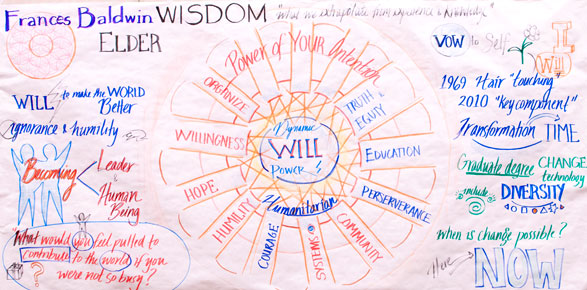 Frances Baldwin WISDOM
"what we extrapolate from experience & knowledge"
ELDER
WILL to make the WORLD
Better
ignorance & humility
Becoming
Leader
&
Human
Being
"What would you feel pulled to
contribute to the world if you
were not so busy?
?
Power of YOUR Intention
ORGANIZE
TRUTH &
EQUITY
WILLINGNESS
EDUCATION
HOPE
PERSERVERANCE
HUMILITY
COMMUNITY
COURAGE
SYSTEMS
Dynamic
WILL
Power
Humanitarian
VOW to Self
I
Will
1969 Hair "touching"
2010 "Key component"
Transformation TIME
Graduate degree CHANGE
technology
include DIVERSITY
when is change possible?
Here
NOW